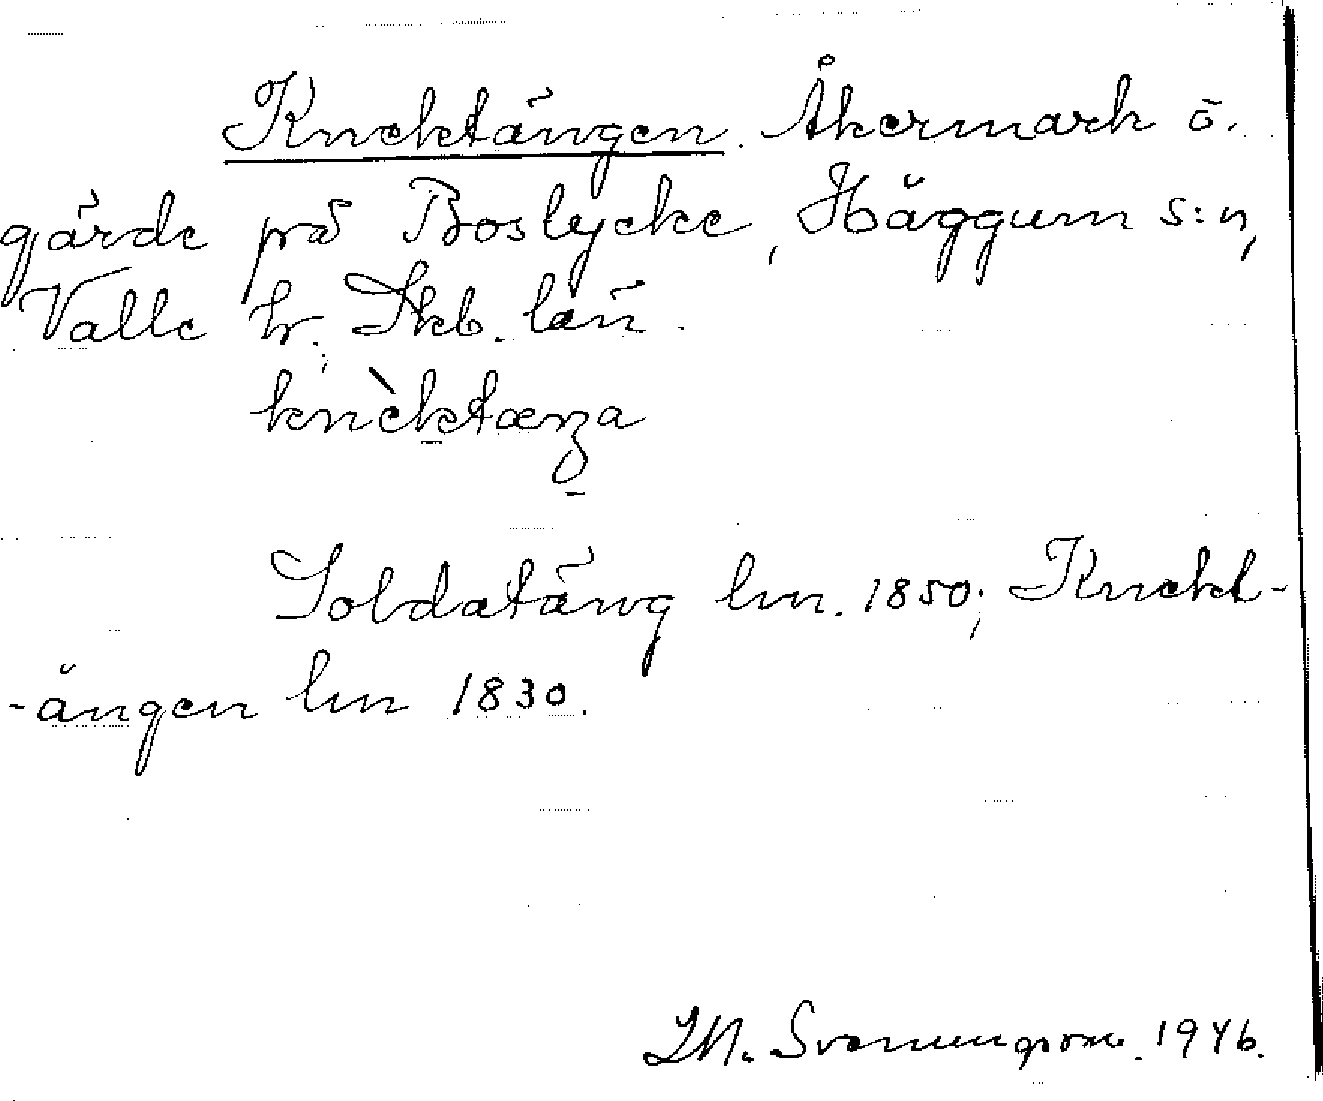 Knektängen. Åkermark ö.
gärde på Boslycke, Häggum s:n,
Valle hr. Skb. län.
knὲktæŋa
Soldatäng lm. 1850; Knekt-
-ängen lm 1830.
Svenungsson. 1946.